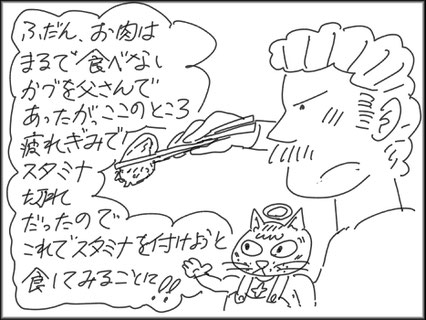 ふだん、お肉は
まるで食べない
かづを父さんで
あったが、ここのところ
疲れぎみで
スタミナ
切れ
だったので
これでスタミナを付けようと
食してみることに!!